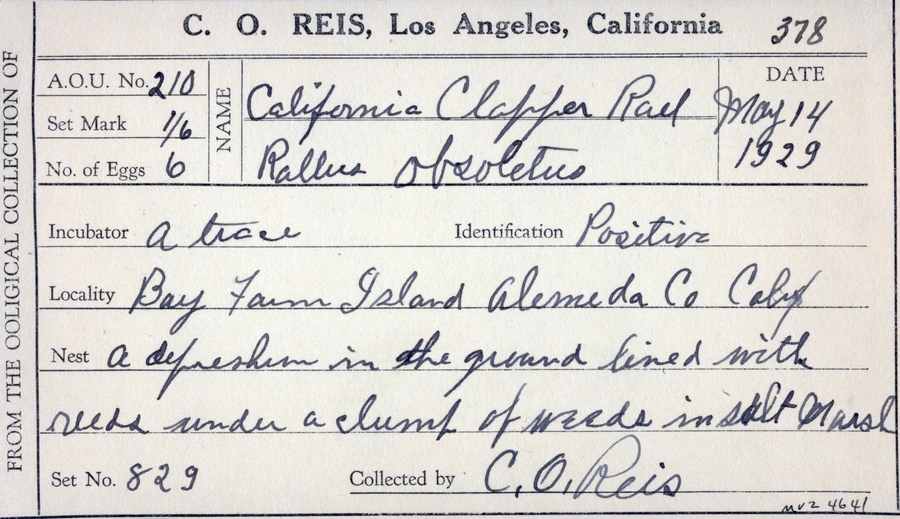 C. O. REIS, Los Angeles, California 378
FROM THE OOLIGICAL COLLECTION OF
A.O.U. No. 210
Set Mark 1/6
No. of Eggs 6
NAME
California Clapper Rail
Rallus obsoletus
DATE
May 14
1929
Incubator a trace Identification Positive
Locality Bay Farm Island Alemeda Co Calif
Nest a depreshun in the ground lined with
reeds under a clump of weeds in salt Marsh
Set No. 829 Collected by C. O. Reis
mvz 4641